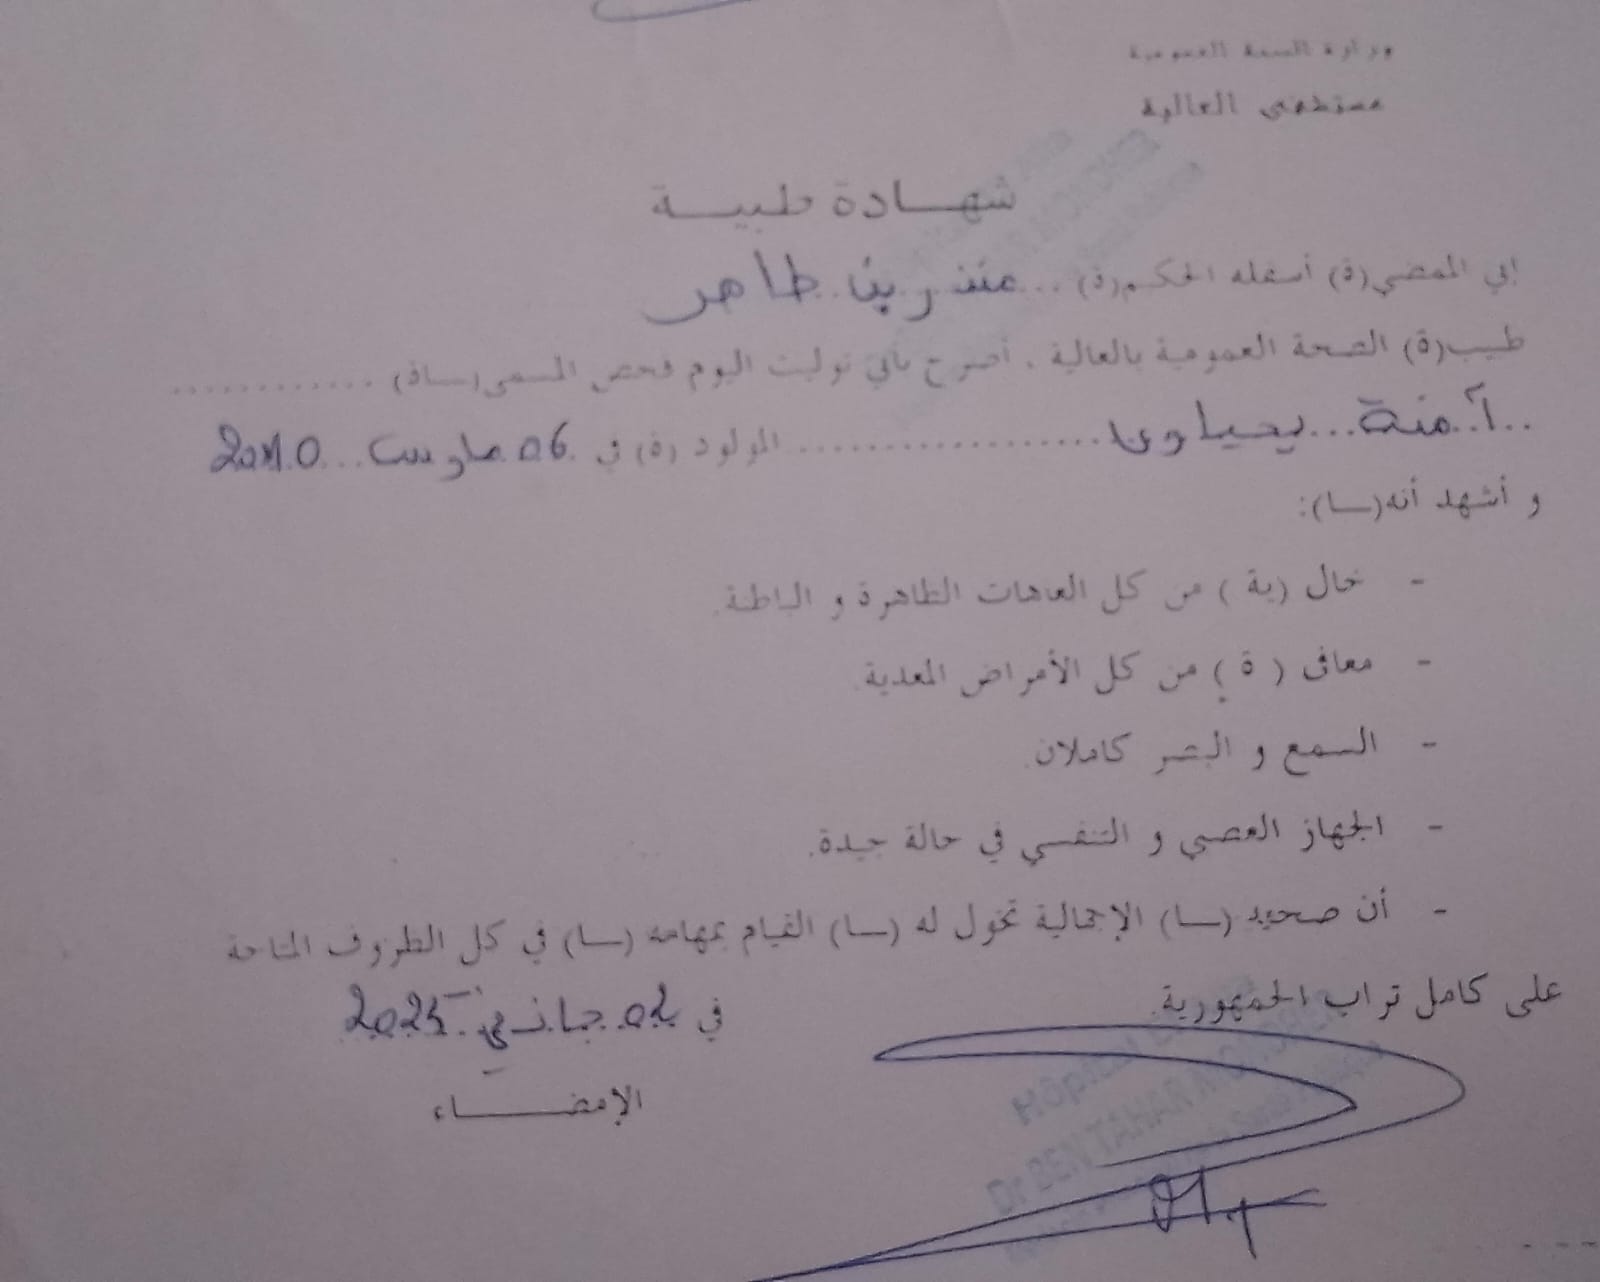 وزارة الصحة العمومية
مستشفى العالية
شهادة طبية
إني الممضي(ة) أسفله الحكيم(ة) ... منذر بن طاهر
طبيب(ة) الصحة العمومية بالعالية . أصرح بأني توليت اليوم فحص المسمى(ـاة) ............
..آمنة...يحياوي.................... المولود (ة) في 06 مارس...2010
و أشهد أنه(ـا):
- خال (ية ) من كل العاهات الظاهرة و الباطنة.
- معافى ( ة ) من كل الأمراض المعدية.
- السمع و البصر كاملان.
- الجهاز العصبي و التنفسي في حالة جيدة.
- أن صحته (ـا) الإجمالية تخول له (ـا) القيام بمهامه (ـا) في كل الظروف المتاحة
على كامل تراب الجمهورية.
في 02 جانفي
الإمضـــاء
Hôpital
Dr BEN TAHAR MONDHER